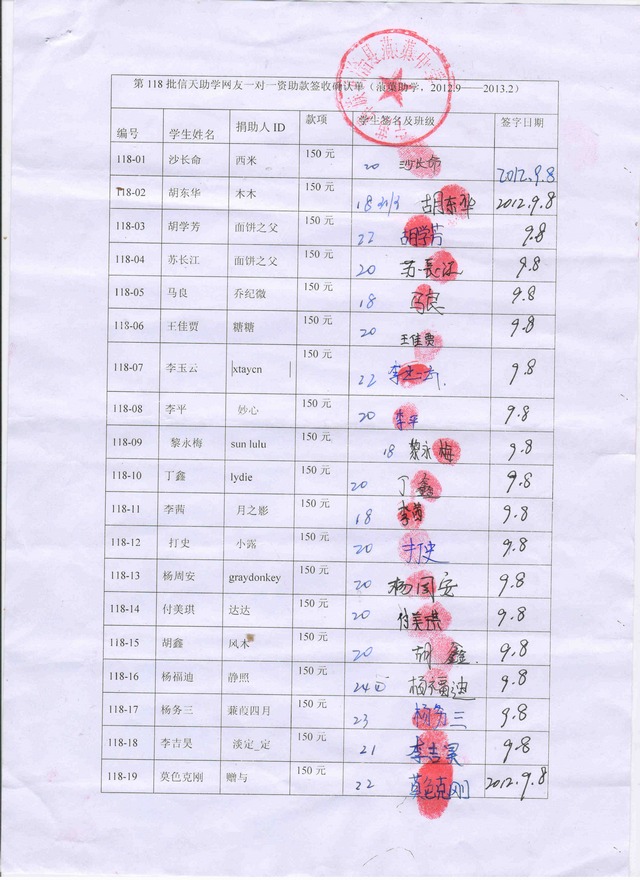 第 118 批信天助学网友一对一资助款签收确认单（蒗蕖助学，2012.9——2013.2）
编号 学生姓名 捐助人 ID 款项 学生签名及班级 签字日期
118-01 沙长命 西米 150 元 20 沙长命 2012.9.8
118-02 胡东华 木木 150 元 18 胡东华 2012.9.8
118-03 胡学芳 面饼之父 150 元 22 胡学芳 9.8
118-04 苏长江 面饼之父 150 元 20 苏長江 9.8
118-05 马良 乔纪微 150 元 18 马良 9.8
118-06 王佳贾 糖糖 150 元 20 王佳贾 9.8
118-07 李玉云 xtaycn 150 元 22 李玉云 9.8
118-08 李平 妙心 150 元 20 李平 9.8
118-09 黎永梅 sun lulu 150 元 18 黎永梅 9.8
118-10 丁鑫 lydie 150 元 20 丁鑫 9.8
118-11 李茜 月之影 150 元 18 李茜 9.8
118-12 打史 小露 150 元 20 打史 9.8
118-13 杨周安 graydonkey 150 元 20 杨周安 9.8
118-14 付美琪 达达 150 元 20 付美琪 9.8
118-15 胡鑫 风木 150 元 20 胡鑫 9.8
118-16 杨福迪 静照 150 元 240 杨福迪 9.8
118-17 杨务三 蒹葭四月 150 元 23 杨务三 9.8
118-18 李吉昊 淡定_定 150 元 21 李吉昊 9.8
118-19 莫色克刚 赠与 150 元 22 莫色克刚 2012.9.8